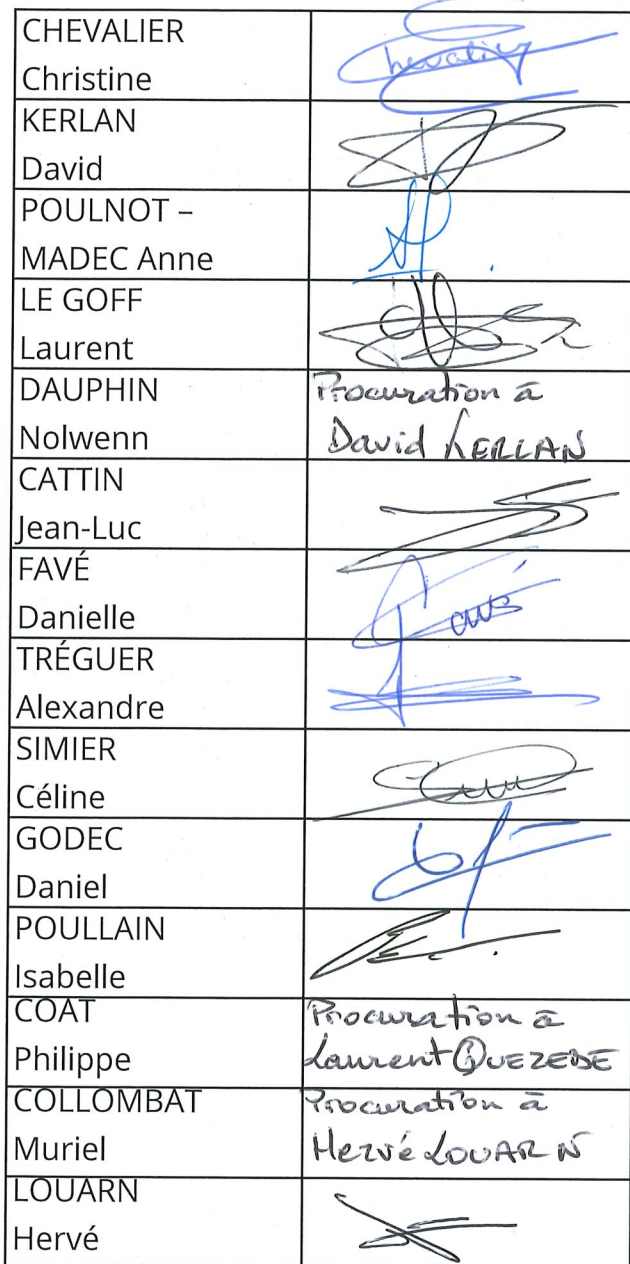 CHEVALIER
Christine
Chevalier
KERLAN
David
POULNOT –
MADEC Anne
LE GOFF
Laurent
DAUPHIN
Nolwenn
Procuration à
David KERLAN
CATTIN
Jean-Luc
FAVÉ
Danielle
Favé
TRÉGUER
Alexandre
SIMIER
Céline
GODEC
Daniel
POULLAIN
Isabelle
COAT
Philippe
Procuration à
Laurent QUEZEDE
COLLOMBAT
Muriel
Procuration à
Hervé LOUARN
LOUARN
Hervé